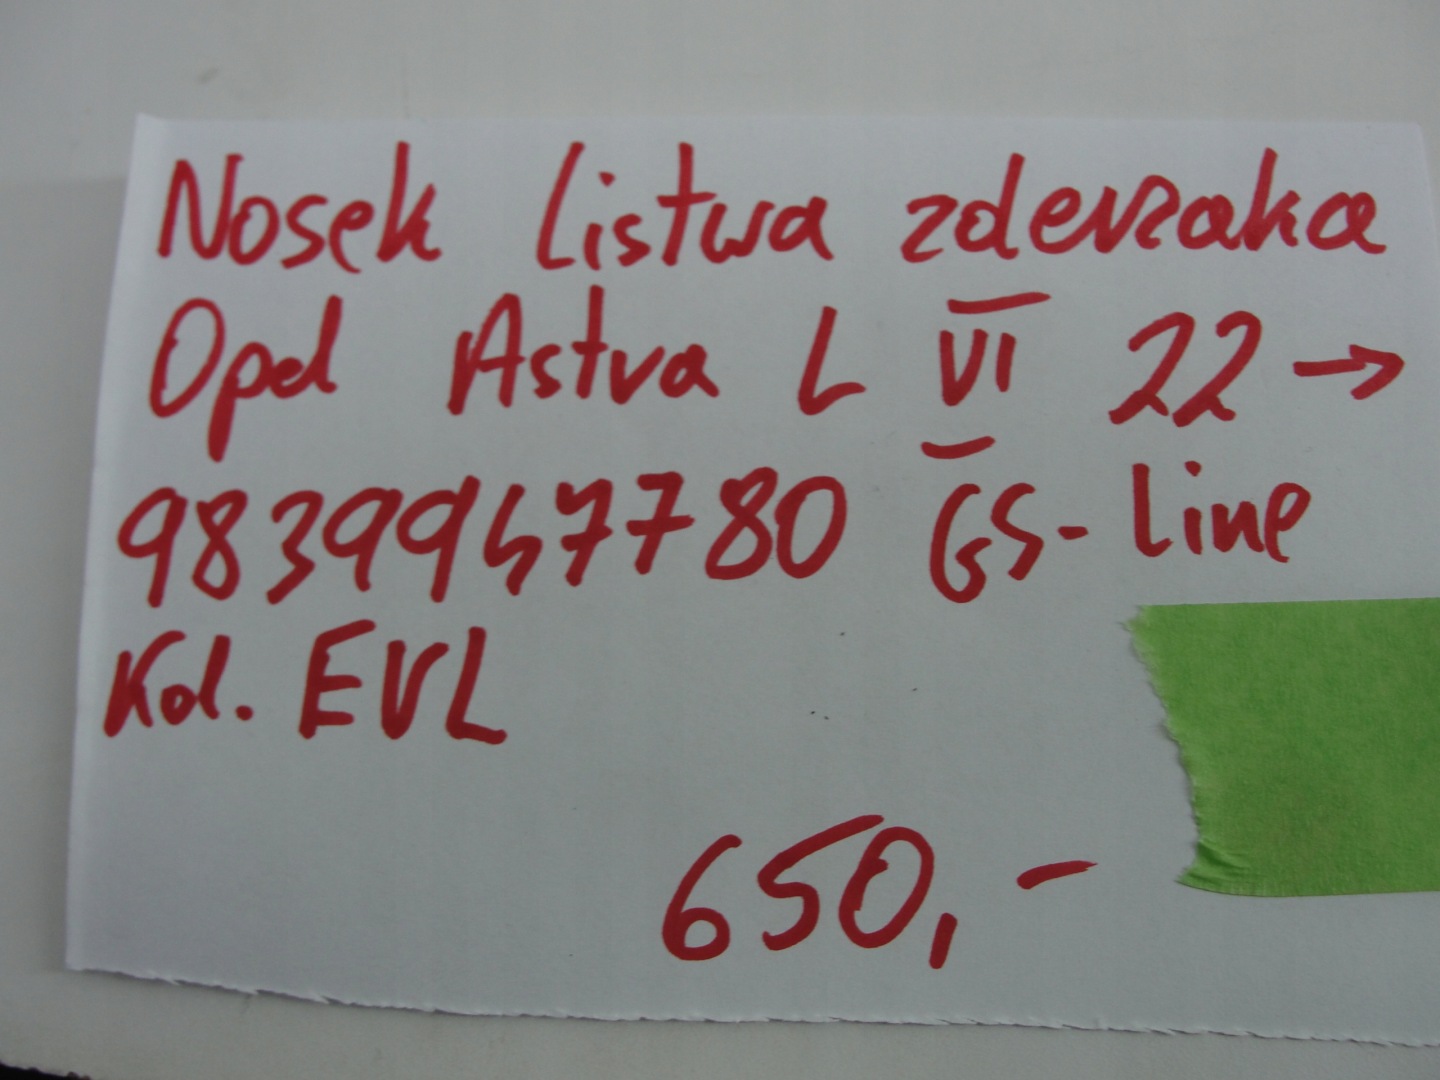 Nosek Listwa zderzaka
Opel Astra L VI 22 →
9839947780 GS-Line
Kol. EVL
650,-